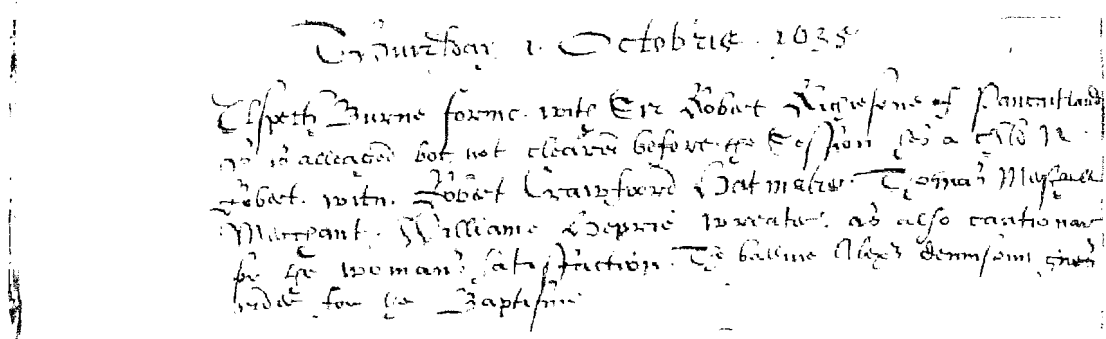 Thursday 1. Octobris. 1635
Elspeth Burne fornic. with Sir Robert Richesone of Pencaitland
as is alleaged bot not cleared before the Session hes a child N
Robert. witn. Robert Crawfoord Hatmaker. Thomas
Merchant. Williame wreater. as also cautionar
for the womans satisfaction. The baillie Alexr dennistoun gives
order for the Baptisme